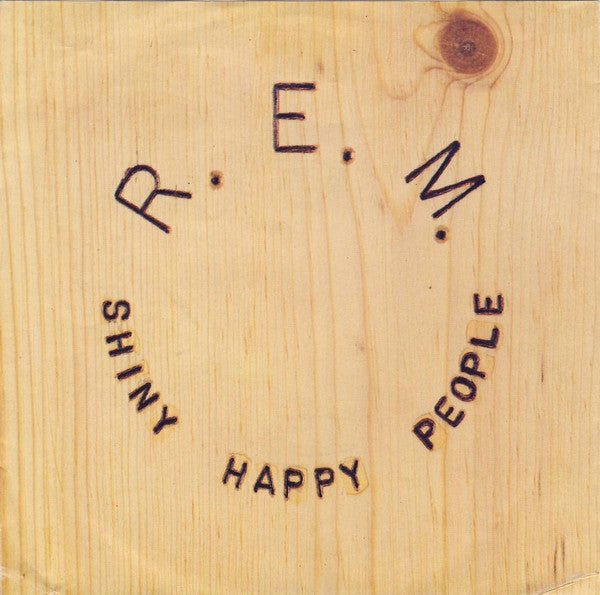 R.E.M.
SHINY HAPPY PEOPLE